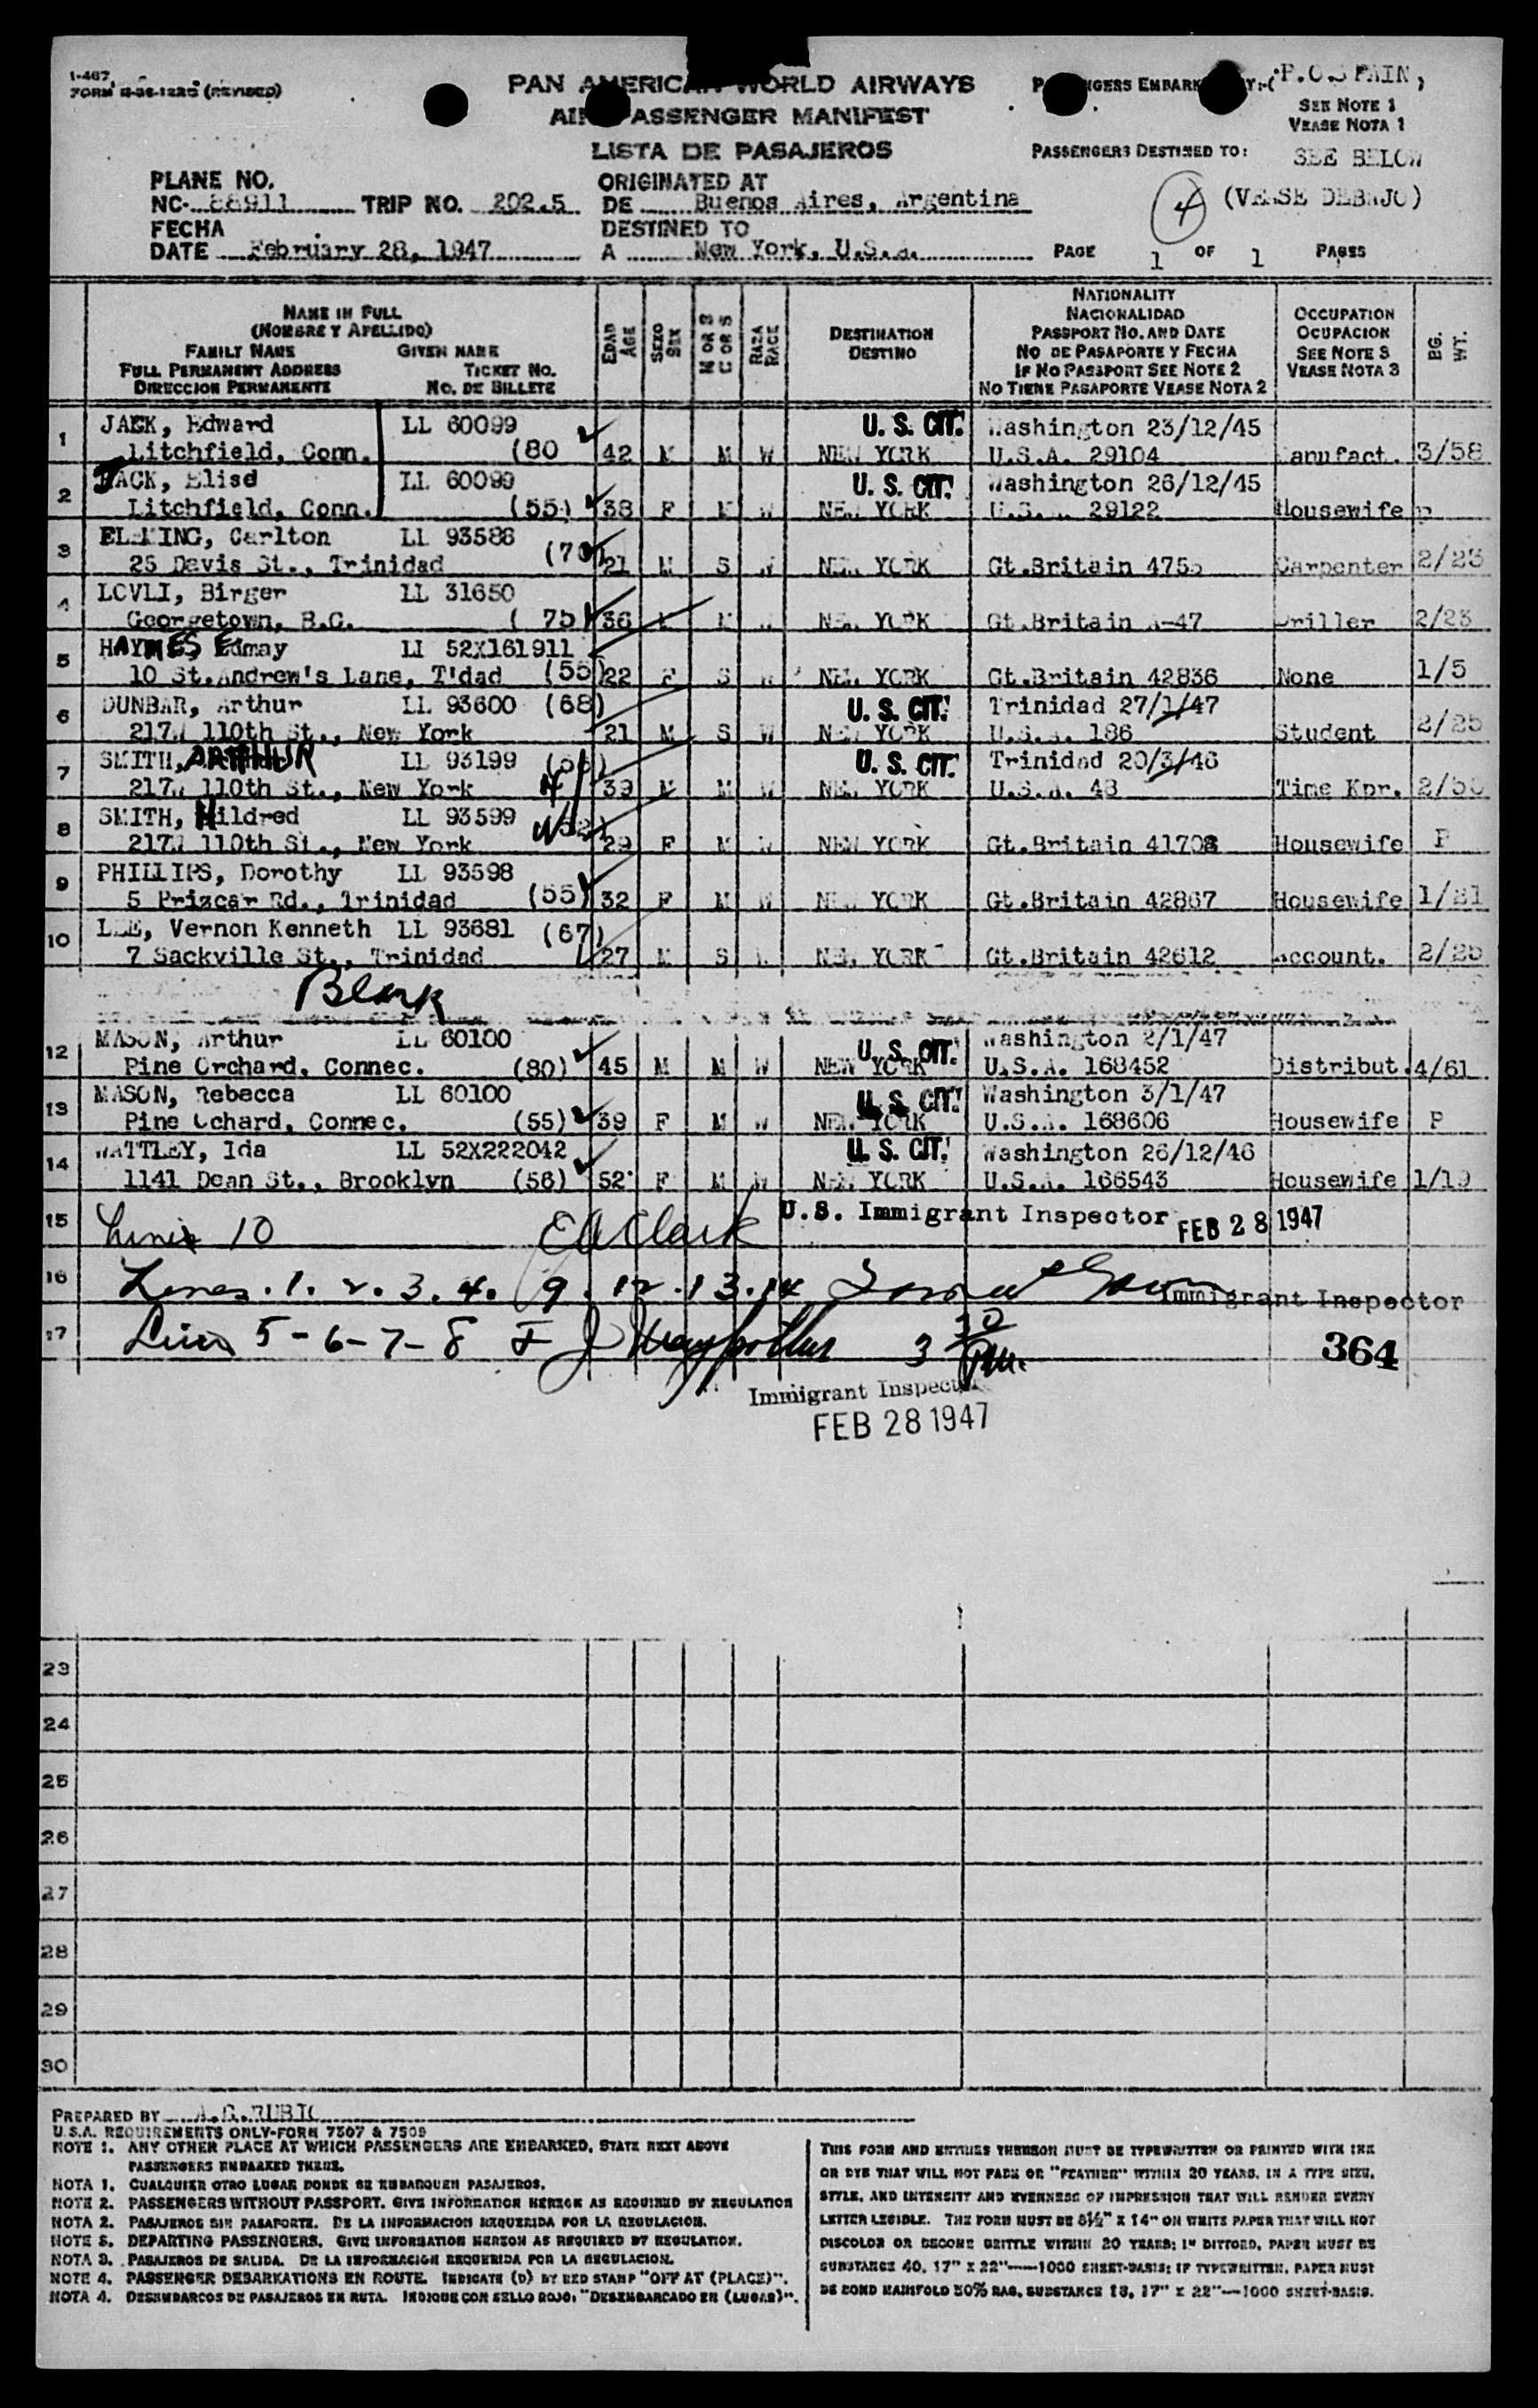 I-467
FORM (REVISED)
PAN AMERICAN WORLD AIRWAYS
AIR PASSENGER MANIFEST
LISTA DE PASAJEROS
PASSENGERS EMBARKED
SEE NOTE 1
VEASE NOTA 1
PASSENGERS DESTINED TO: SEE BELOW
(VEASE DEBAJO)
4
PLANE NO.
NC- 88911 TRIP NO. 202.5
FECHA
DATE February 28, 1947
ORIGINATED AT
DE Buenos Aires, Argentina
DESTINED TO
A New York, U.S.A.
PAGE 1 OF 1 PAGES
NAME IN FULL
(NOMBRE Y APELLIDO)
FAMILY NAME GIVEN NAME
FULL PERMANENT ADDRESS TICKET NO.
DIRECCION PERMANENTE NO. DE BILLETE
EDAD AGE
SEXO SEX
M OR S C OR S
RAZA RACE
DESTINATION
DESTINO
NATIONALITY
NACIONALIDAD
PASSPORT NO. AND DATE
NO DE PASAPORTE Y FECHA
IF NO PASSPORT SEE NOTE 2
NO TIENE PASAPORTE VEASE NOTA 2
OCCUPATION
OCUPACION
SEE NOTE 3
VEASE NOTA 3
BG. WT.
1 JACK, Edward LL 60099 U. S. CIT. Washington 23/12/45
Litchfield, Conn. (80 42 M M W NEW YORK U.S.A. 29104 Manufact. 3/58
2 JACK, Elise LL 60099 U. S. CIT. Washington 26/12/45
Litchfield, Conn. (55) 38 F M W NEW YORK U.S.A. 29122 Housewife P
3 FLEMING, Carlton LL 93586
25 Davis St., Trinidad 21 M S W NEW YORK Gt.Britain Carpenter 2/23
4 LOVLI, Birger LL 31650
Georgetown, B.G. (75) 36 M M W NEW YORK Gt.Britain A-47 Driller 2/23
5 HAYMES Edmay LL 52X161911
10 St.Andrew's Lane, T'dad (55) 22 F S W NEW YORK Gt.Britain 42836 None 1/5
6 DUNBAR, Arthur LL 93600 (68) U. S. CIT. Trinidad 27/1/47
217W 110th St., New York 21 M S W NEW YORK U.S.A. 186 Student 2/25
7 SMITH, ARTHUR LL 93199 U. S. CIT. Trinidad 20/3/46
217W 110th St., New York 39 M M W NEW YORK U.S.A. 48 Time Kpr.
8 SMITH, Hildred LL 93599
217W 110th St., New York 29 F M W NEW YORK Gt.Britain 41708 Housewife P
9 PHILLIPS, Dorothy LL 93598
5 Prizcar Rd., Trinidad (55) 32 F M W NEW YORK Gt.Britain 42867 Housewife 1/21
10 LEE, Vernon Kenneth LL 93681 (67)
7 Sackville St., Trinidad 27 M S W NEW YORK Gt.Britain 42612 Account. 2/25
Blank
12 MASON, Arthur LL 60100 U. S. CIT. Washington 2/1/47
Pine Orchard, Connec. (80) 45 M M W NEW YORK U.S.A. 168452 Distribut. 4/61
13 MASON, Rebecca LL 60100 U. S. CIT. Washington 3/1/47
Pine Ochard, Connec. (55) 39 F M W NEW YORK U.S.A. 168606 Housewife P
14 WATTLEY, Ida LL 52X222042 U. S. CIT. Washington 26/12/46
1141 Dean St., Brooklyn (56) 52 F M W NEW YORK U.S.A. 166543 Housewife 1/19
15 Line 10 E A Clark U.S. Immigrant Inspector FEB 28 1947
16 Lines. 1. 2. 3. 4. 9. 12. 13. 14 Immigrant Inspector
17 Lines 5-6-7-8 3 30 Pm. 364
Immigrant Inspector
FEB 28 1947
23
24
25
26
27
28
29
30
PREPARED BY A.G.RUBIO
U.S.A. REQUIREMENTS ONLY-FORM 7507 & 7509
NOTE 1. ANY OTHER PLACE AT WHICH PASSENGERS ARE EMBARKED, STATE NEXT ABOVE
PASSENGERS EMBARKED THERE.
NOTA 1. CUALQUIER OTRO LUGAR DONDE SE EMBARQUEN PASAJEROS.
NOTE 2. PASSENGERS WITHOUT PASSPORT. GIVE INFORMATION HEREON AS REQUIRED BY REGULATION
NOTA 2. PASAJEROS SIN PASAPORTE. DE LA INFORMACION REQUERIDA POR LA REGULACION.
NOTE 3. DEPARTING PASSENGERS. GIVE INFORMATION HEREON AS REQUIRED BY REGULATION.
NOTA 3. PASAJEROS DE SALIDA. DE LA INFORMACION REQUERIDA POR LA REGULACION.
NOTE 4. PASSENGER DEBARKATIONS EN ROUTE. INDICATE (D) BY RED STAMP "OFF AT (PLACE)".
NOTA 4. DESEMBARCOS DE PASAJEROS EN RUTA. INDIQUE CON SELLO ROJO: "DESEMBARCADO EN (LUGAR)".
THIS FORM AND ENTRIES THEREON MUST BE TYPEWRITTEN OR PRINTED WITH INK
OR DYE THAT WILL NOT FADE OR "FEATHER" WITHIN 20 YEARS, IN A TYPE SIZE,
STYLE, AND INTENSITY AND EVENNESS OF IMPRESSION THAT WILL RENDER EVERY
LETTER LEGIBLE. THE FORM MUST BE 8½" X 14" ON WHITE PAPER THAT WILL NOT
DISCOLOR OR BECOME BRITTLE WITHIN 20 YEARS; IF DITTOED, PAPER MUST BE
SUBSTANCE 40, 17" X 22"—1000 SHEET-BASIS; IF TYPEWRITTEN, PAPER MUST
BE BOND MANIFOLD 50% RAG, SUBSTANCE 18, 17" X 22"—1000 SHEET-BASIS.